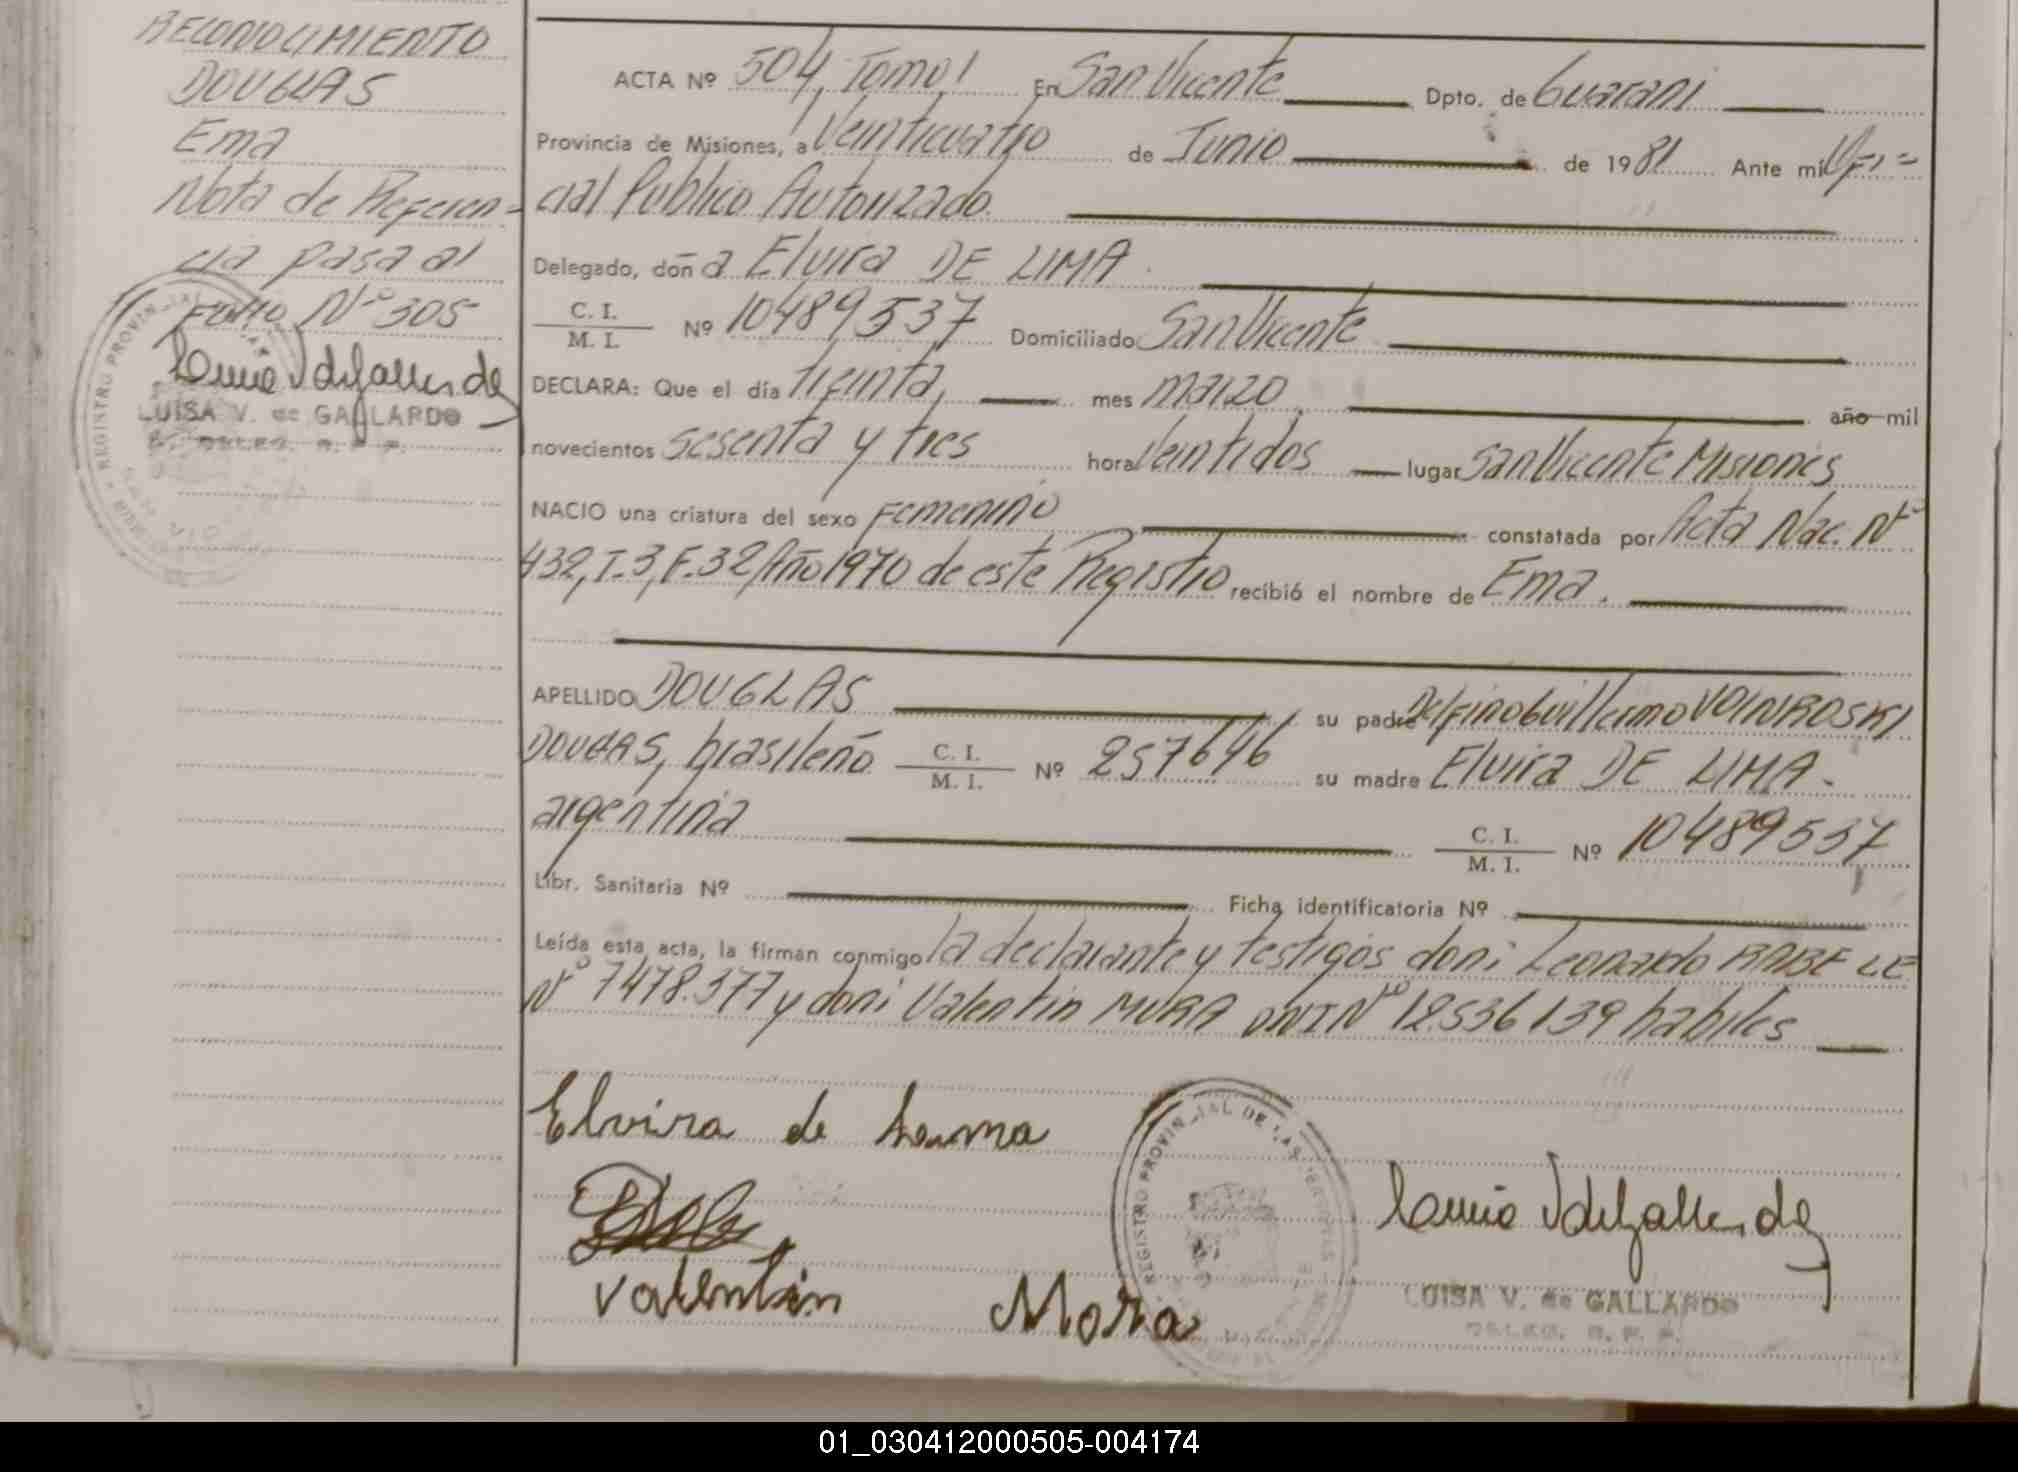 RECONOCIMIENTO
DOUGLAS
Ema
Nota de Referen-
cia pasa al
Folio Nº 305
LUISA V. de GALLARDO
ACTA Nº 504, Tomo I En San Vicente Dpto. de Guarani
Provincia de Misiones, a Veinticuatro de Junio de 1981 Ante mi Ofi=
cial Publico Autorizado.
Delegado, doña Elvira DE LIMA.
C. I.
M. I. Nº 10489537 Domiciliado San Vicente
DECLARA: Que el día treinta, mes marzo, año mil
novecientos sesenta y tres hora Veintidos lugar San Vicente Misiones
NACIO una criatura del sexo Femenino constatada por Acta Nac. Nº
432, T.3, F.32, Año 1970 de este Registro recibió el nombre de Ema.
APELLIDO DOUGLAS su padre Delfino Guillermo VOINROSKI
DOUGAS, brasileño C. I. M. I. Nº 257646 su madre Elvira DE LIMA.
argentina C. I. M. I. Nº 10489537
Libr. Sanitaria Nº Ficha identificatoria Nº
Leída esta acta, la firman conmigo la declarante y testigos don: Leonardo RABE LE
Nº 7478.377 y don: Valentin MORA DNI Nº 12536139 habiles
Elvira de
Valentin Mora
REGISTRO PROVINCIAL DE LAS PERSONAS
LUISA V. de GALLARDO
DELEG. R. P. P.
01_030412000505-004174